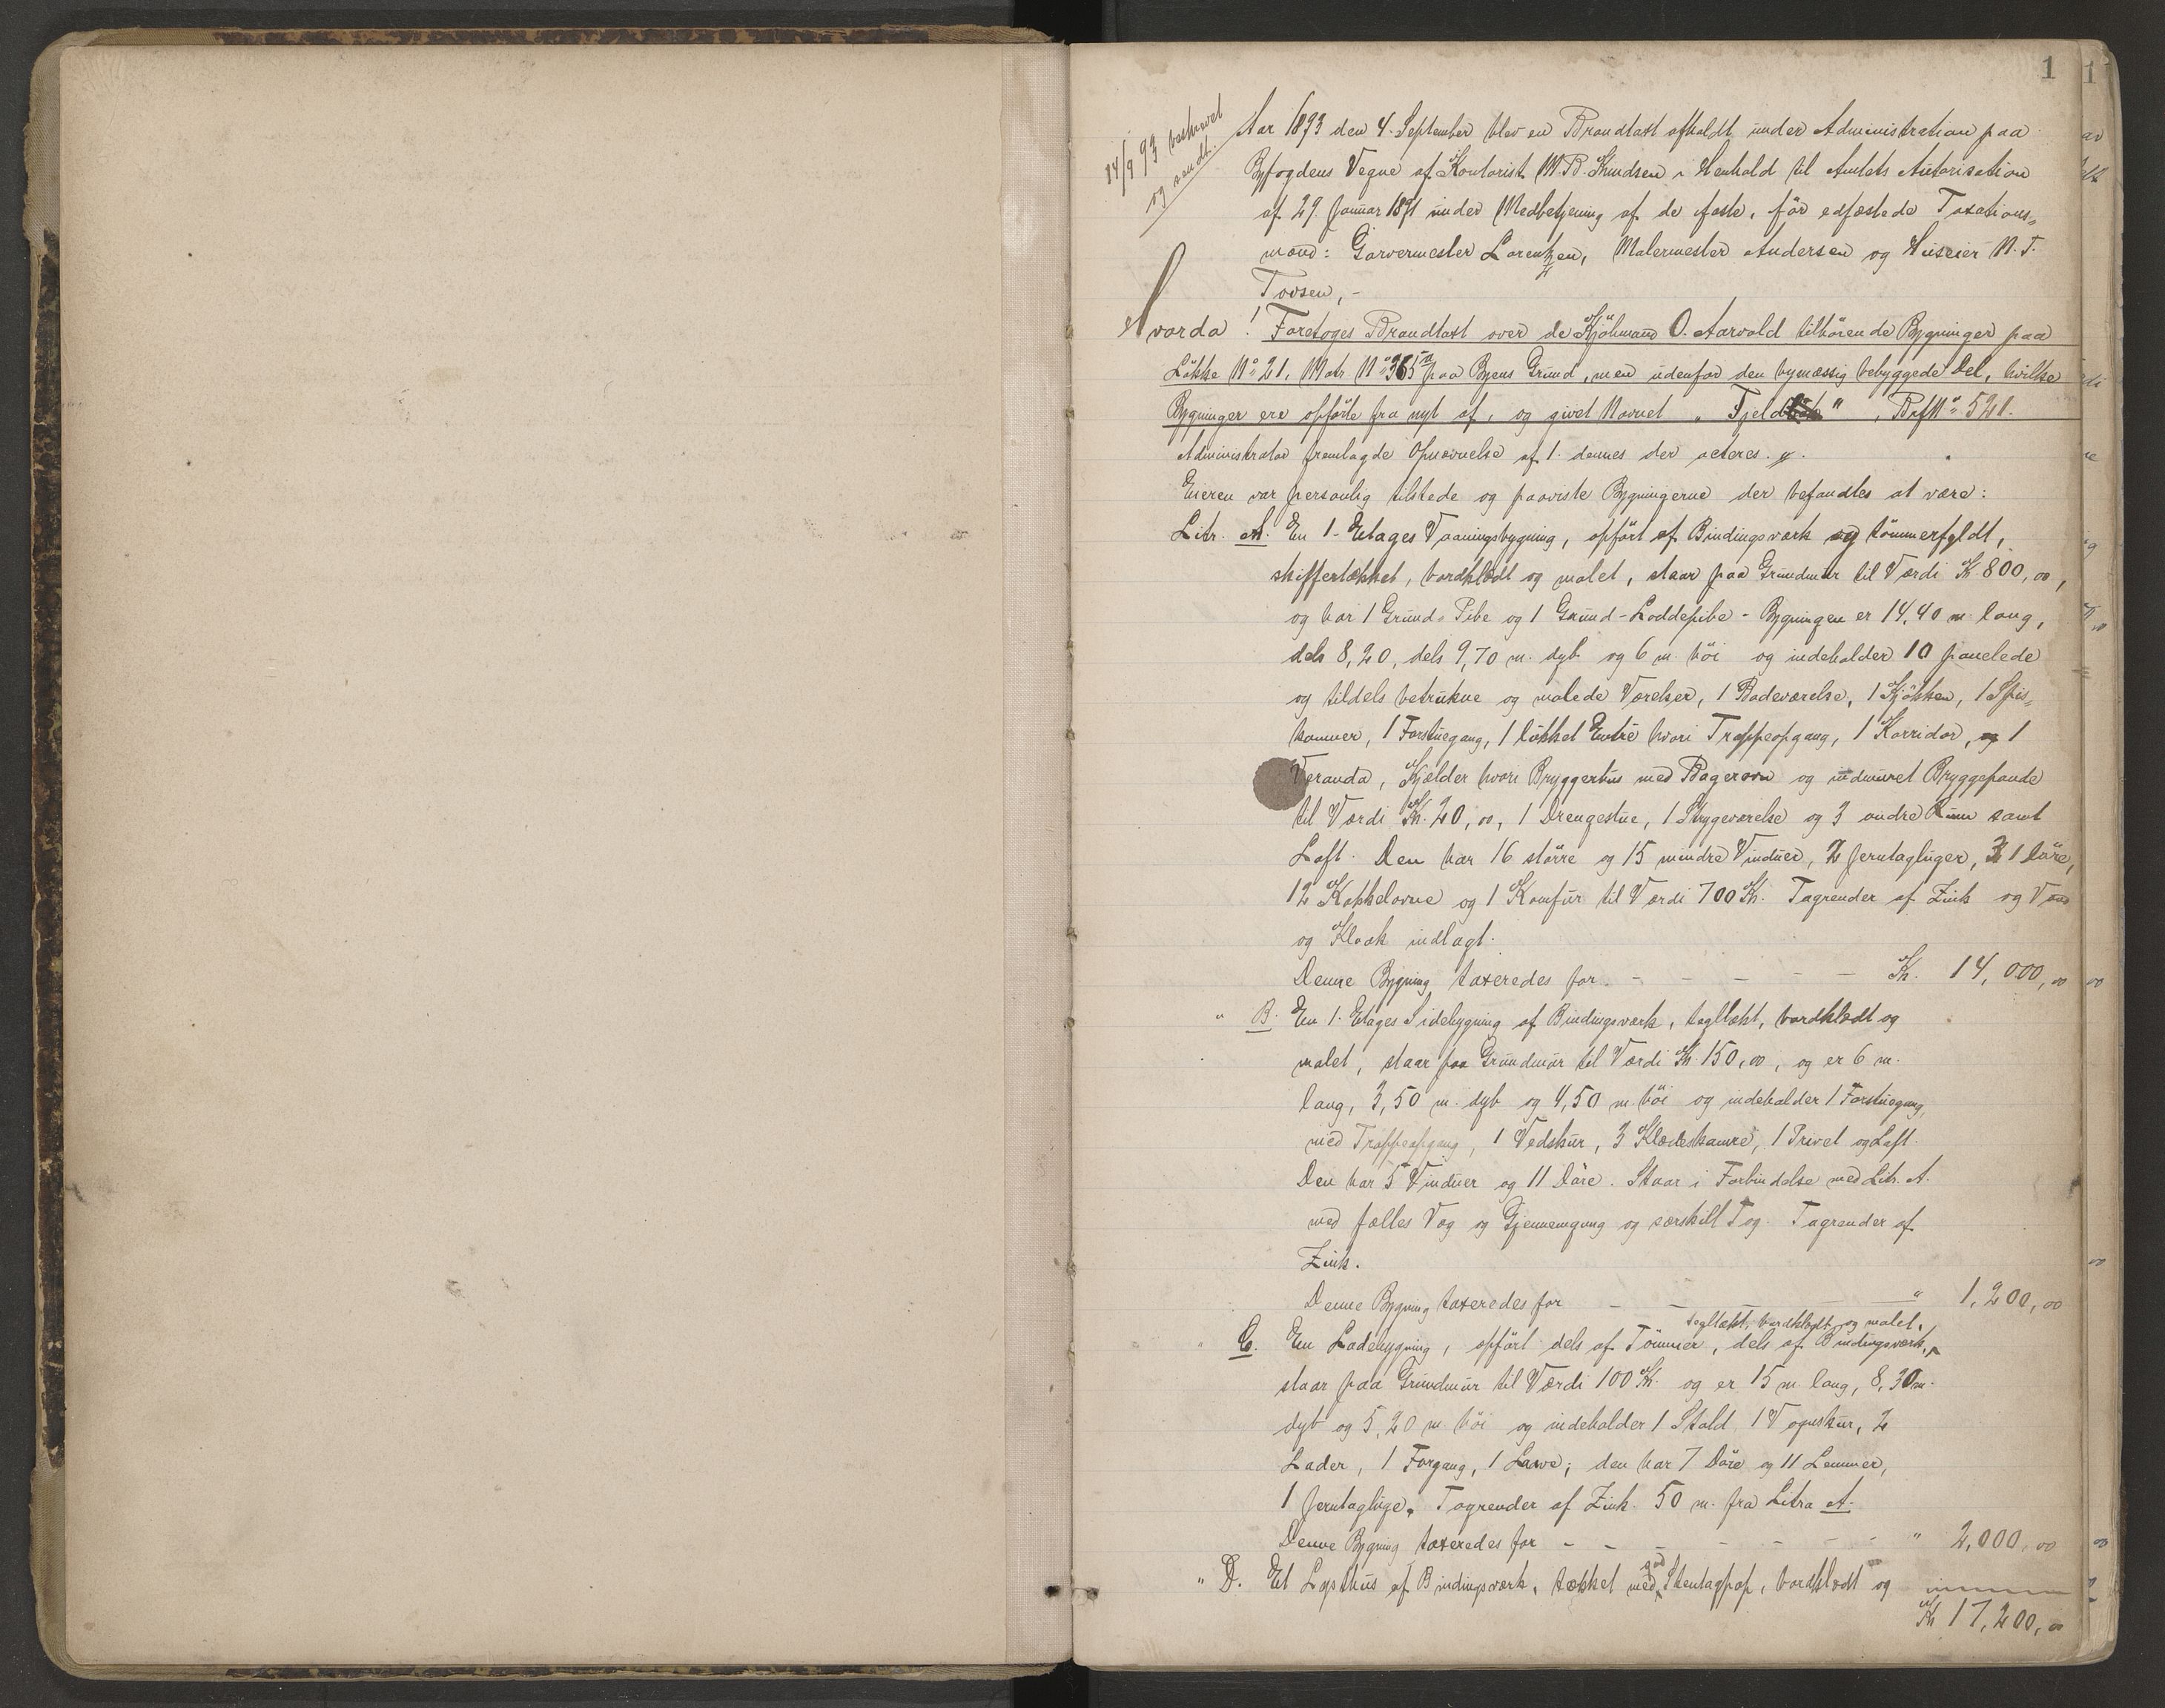 1
14/9 93 beskrevet
og sendt.
Aar 1893 den 4. September blev en Brandtaxt afholdt under Administration paa
Byfogdens Vegne af Kontorist M. B. Knudsen i Henhold til Amtets Autorisation
af 29 Januar 1891 under Medbetjening af de faste, før edfæstede Taxations-
mænd: Garvermester Lorentzen, Malermester Andersen og Huseier N. T.
Tovsen, -
Hvorda! Foretoges Brandtaxt over de Kjøbmand O. Aarvold tilhørende Bygninger paa
Løkke No 21, Matr No 365a paa Byens Grund, men udenfor den bymæssig bebyggede Del, hvilke
Bygninger ere opførte fra nyt af, og givet Navnet „Fjeld“, BrfNo 521.
Administrator fremlagde Opnævnelse af 1. dennes der acteres.
Eieren var personlig tilstede og paaviste Bygningerne der befandtes at være:
Litr. A. En 1-Etages Vaaningsbygning, opført af Bindingsværk og tømmerfyldt,
skiffertækket, bordklædt og malet, staar paa Grundmur til Værdi Kr 800,00,
og har 1 Grund-Pibe og 1 Grund-Loddepibe - Bygningen er 14,40 m. lang,
dels 8,20, dels 9,70 m. dyb og 6 m. høi og indeholder 10 panelede
og tildels betrukne og malede Værelser, 1 Badeværelse, 1 Kjøkken, 1 Spis-
kammer, 1 Forstuegang, 1 lukket Entre hvori Trappeopgang, 1 Korridor, og 1
Veranda, Kjælder hvori Bryggerhus med Bagerovn og indmuret Bryggepande
til Værdi Kr. 20,00, 1 Drengestue, 1 Strygeværelse og 3 andre Rum samt
Loft. Den har 16 større og 15 mindre Vinduer, 2 Jerntagluger, 31 Døre,
12 Kakkelovne og 1 Komfur til Værdi 700 Kr. Tagrender af Zink og Vand
og Kloak indlagt.
Denne Bygning taxeredes for - - - - - Kr. 14,000,00
" B. En 1. Etages Sidebygning af Bindingsværk, tegltækt, bordklædt og
malet, staar paa Grundmur til Værdi Kr. 150,00, og er 6 m.
lang, 3,50 m. dyb og 4,50 m. høi og indeholder 1 Forstuegang
med Trappeopgang, 1 Vedskur, 3 Klædeskamre, 1 Privet og Loft.
Den har 5 Vinduer og 11 Døre. Staar i Forbindelse med Litr. A.
med fælles Væg og Gjennemgang og særskilt Tag. Tagrender af
Zink.
Denne Bygning taxeredes for - - - - " 1,200,00
tegltækt, bordklædt og malet,
" C. En Ladebygning, opført dels af Tømmer, dels af Bindingsværk,
staar paa Grundmur til Værdi 100 Kr. og er 15 m. lang, 8,30 m.
dyb og 5,20 m. høi og indeholder 1 Stald, 1 Vognskur, 2
Lader, 1 Forgang, 1 Laave; den har 7 Døre og 11 Lemmer,
1 Jerntagluge. Tagrender af Zink. 50 m. fra Litra A.
Denne Bygning taxeredes for - - - - - - " 2,000,00
" D. Et Lysthus af Bindingsværk, tækket med Stentagpap, bordklædt og
Kr 17,200,00